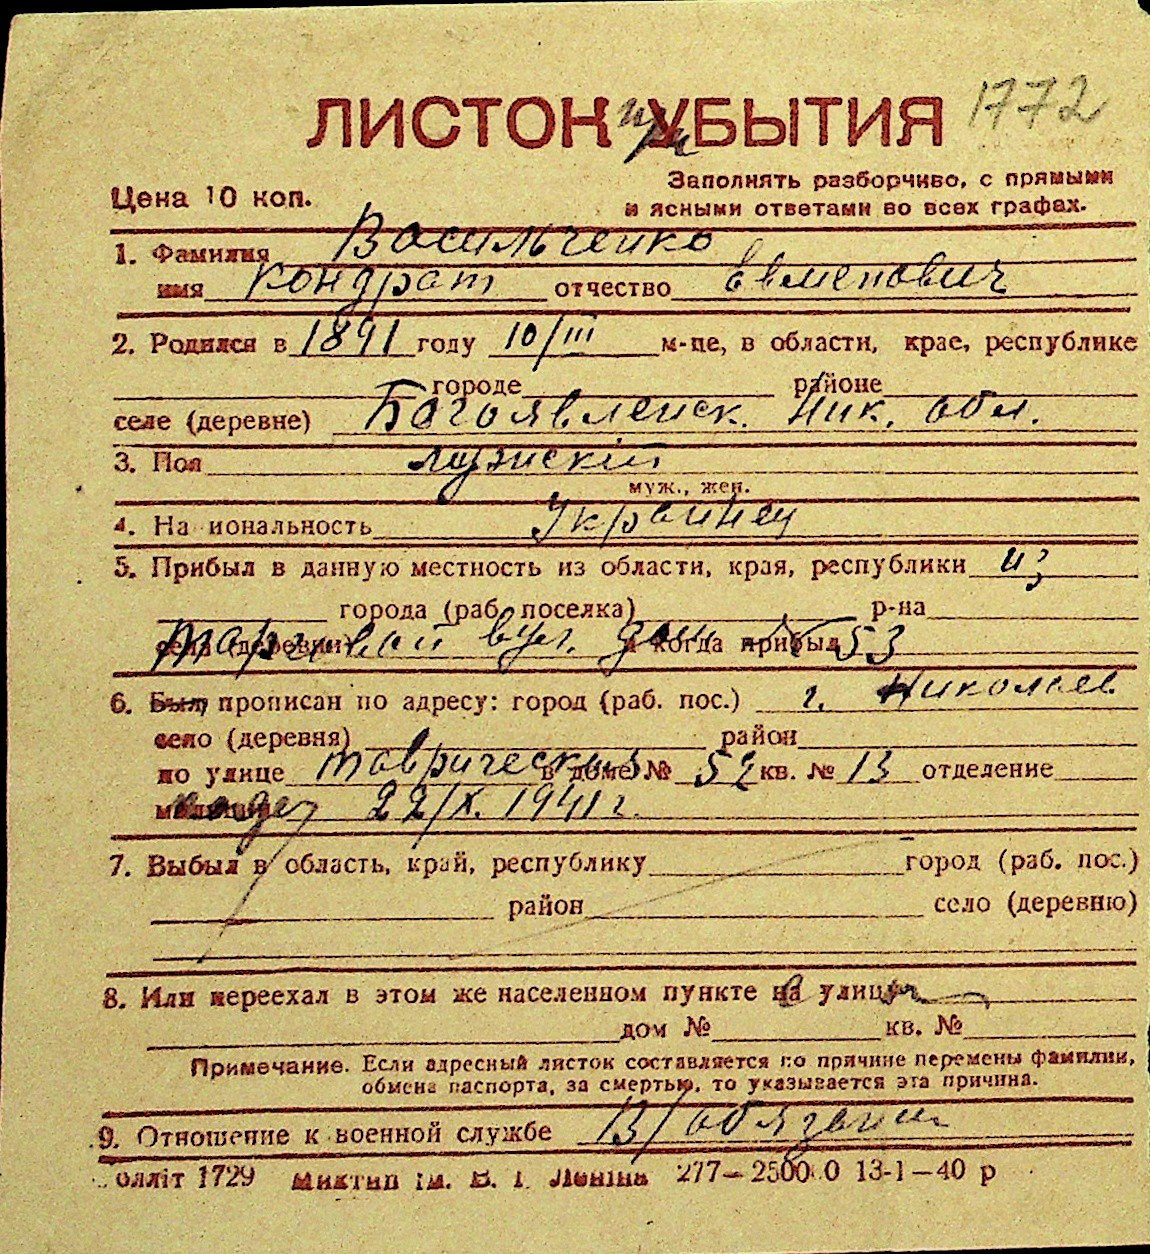 1772
ЛИСТОК при УБЫТИЯ
Цена 10 коп.
Заполнять разборчиво, с прямыми
и ясными ответами во всех графах.
1. Фамилия Васильченко
имя Кондрат отчество Евменович
2. Родился в 1891 году 10/III м-це, в области, крае, республике
городе районе
селе (деревне) Богоявленск. Ник. обл.
3. Пол мужской
муж., жен.
4. На иональность Украинец
5. Прибыл в данную местность из области, края, республики из
города (раб. поселка) р-на
села (деревни) вул. дом и когда прибыл 53
6. Был прописан по адресу: город (раб. пос.) г. Николаев
село (деревня) район
по улице Таврическая в доме № 52 кв. № 13 отделение
милиции 22/X. 1941 г.
7. Выбыл в область, край, республику город (раб. пос.)
район село (деревню)
8. Или переехал в этом же населенном пункте на улицу
дом № кв. №
Примечание. Если адресный листок составляется по причине перемены фамилии,
обмена паспорта, за смертью, то указывается эта причина.
9. Отношение к военной службе В/обязани
олліт 1729 Миктип ім. В. І. Леніна 277—2500 0 13-1—40 р